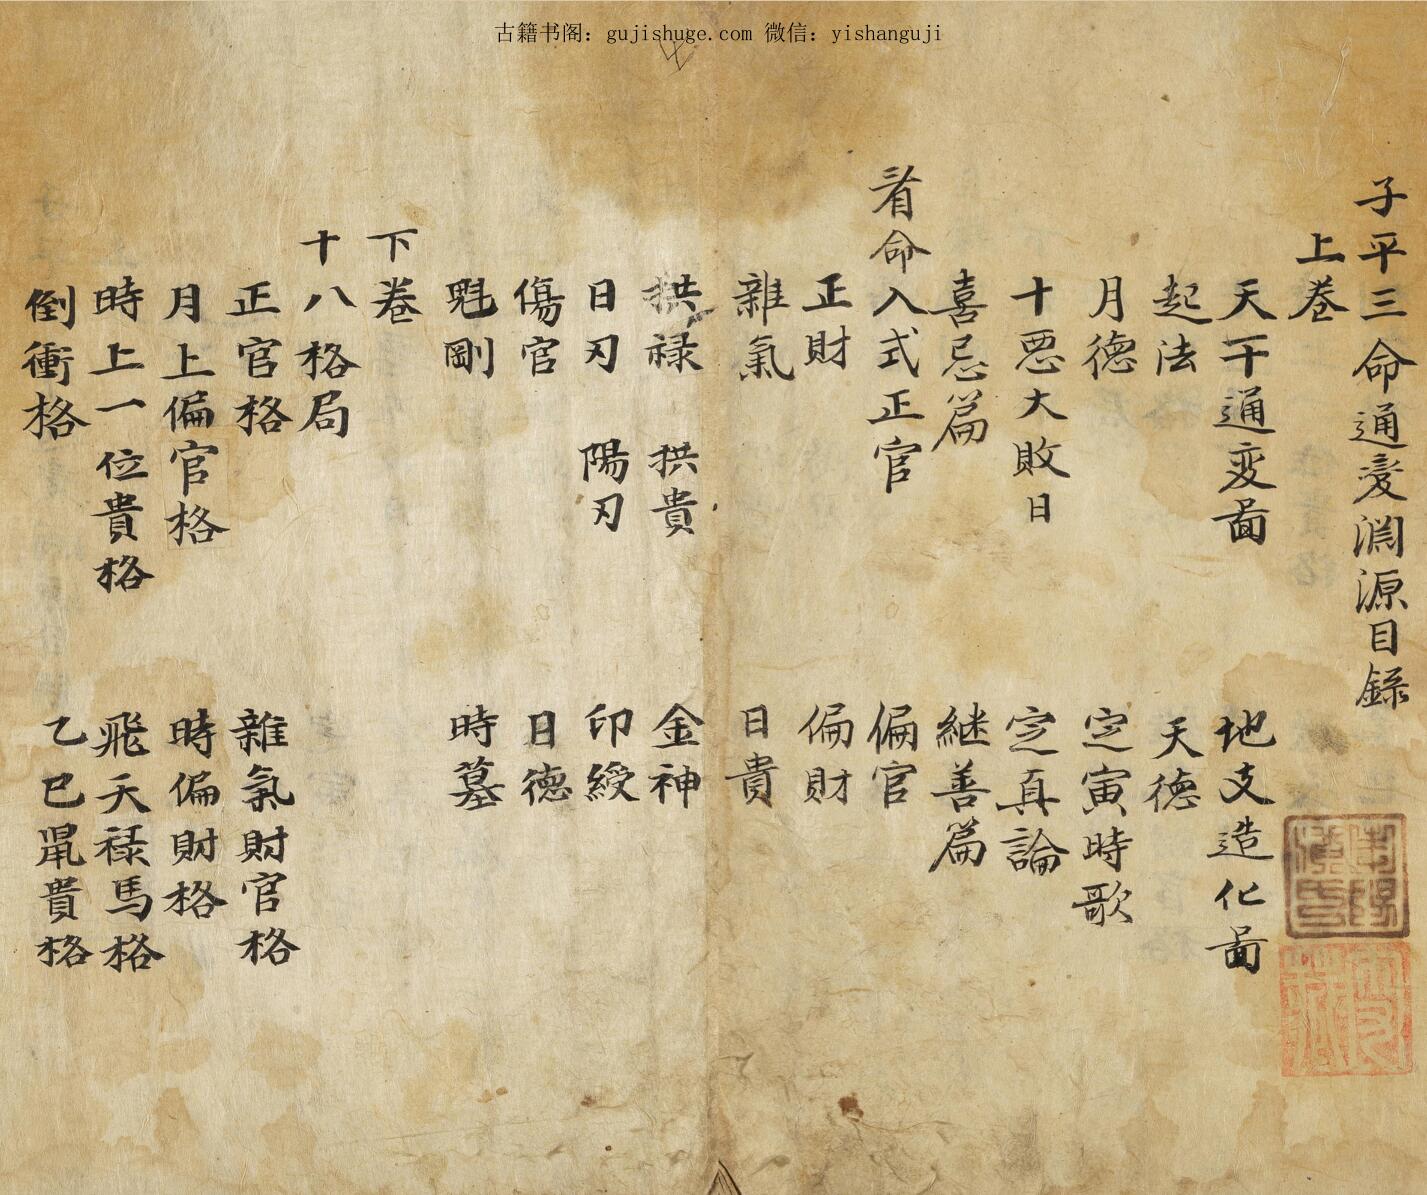 古籍书阁：gujishuge.com 微信：yishanguji
子平三命通变渊源目録
上卷
天干通変啚 地支造化啚
起法 天德
月德 定寅時歌
十惡大敗日 定真論
喜忌篇 継善篇
看命入式正官 偏官
正財 偏財
雜氣 日貴
拱禄 拱貴 金神
日刃 陽刃 印綬
傷官 日德
魁剛 時墓
下卷
十八格局
正官格 雜氣財官格
月上偏官格 時偏財格
時上一位貴格 飛天禄馬格
倒衝格 乙巳鼠貴格